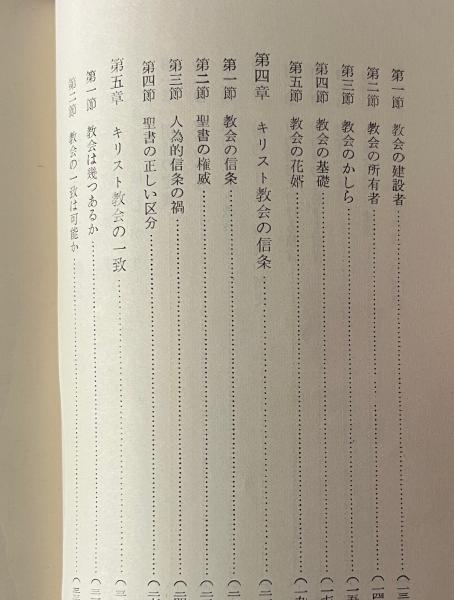 第一節 教会の建設者
第二節 教会の所有者
第三節 教会のかしら
第四節 教会の基礎
第五節 教会の花婿
第四章 キリスト教会の信条
第一節 教会の信条
第二節 聖書の権威
第三節 人為的信条の禍
第四節 聖書の正しい区分
第五章 キリスト教会の一致
第一節 教会は幾つあるか
第二節 教会の一致は可能か